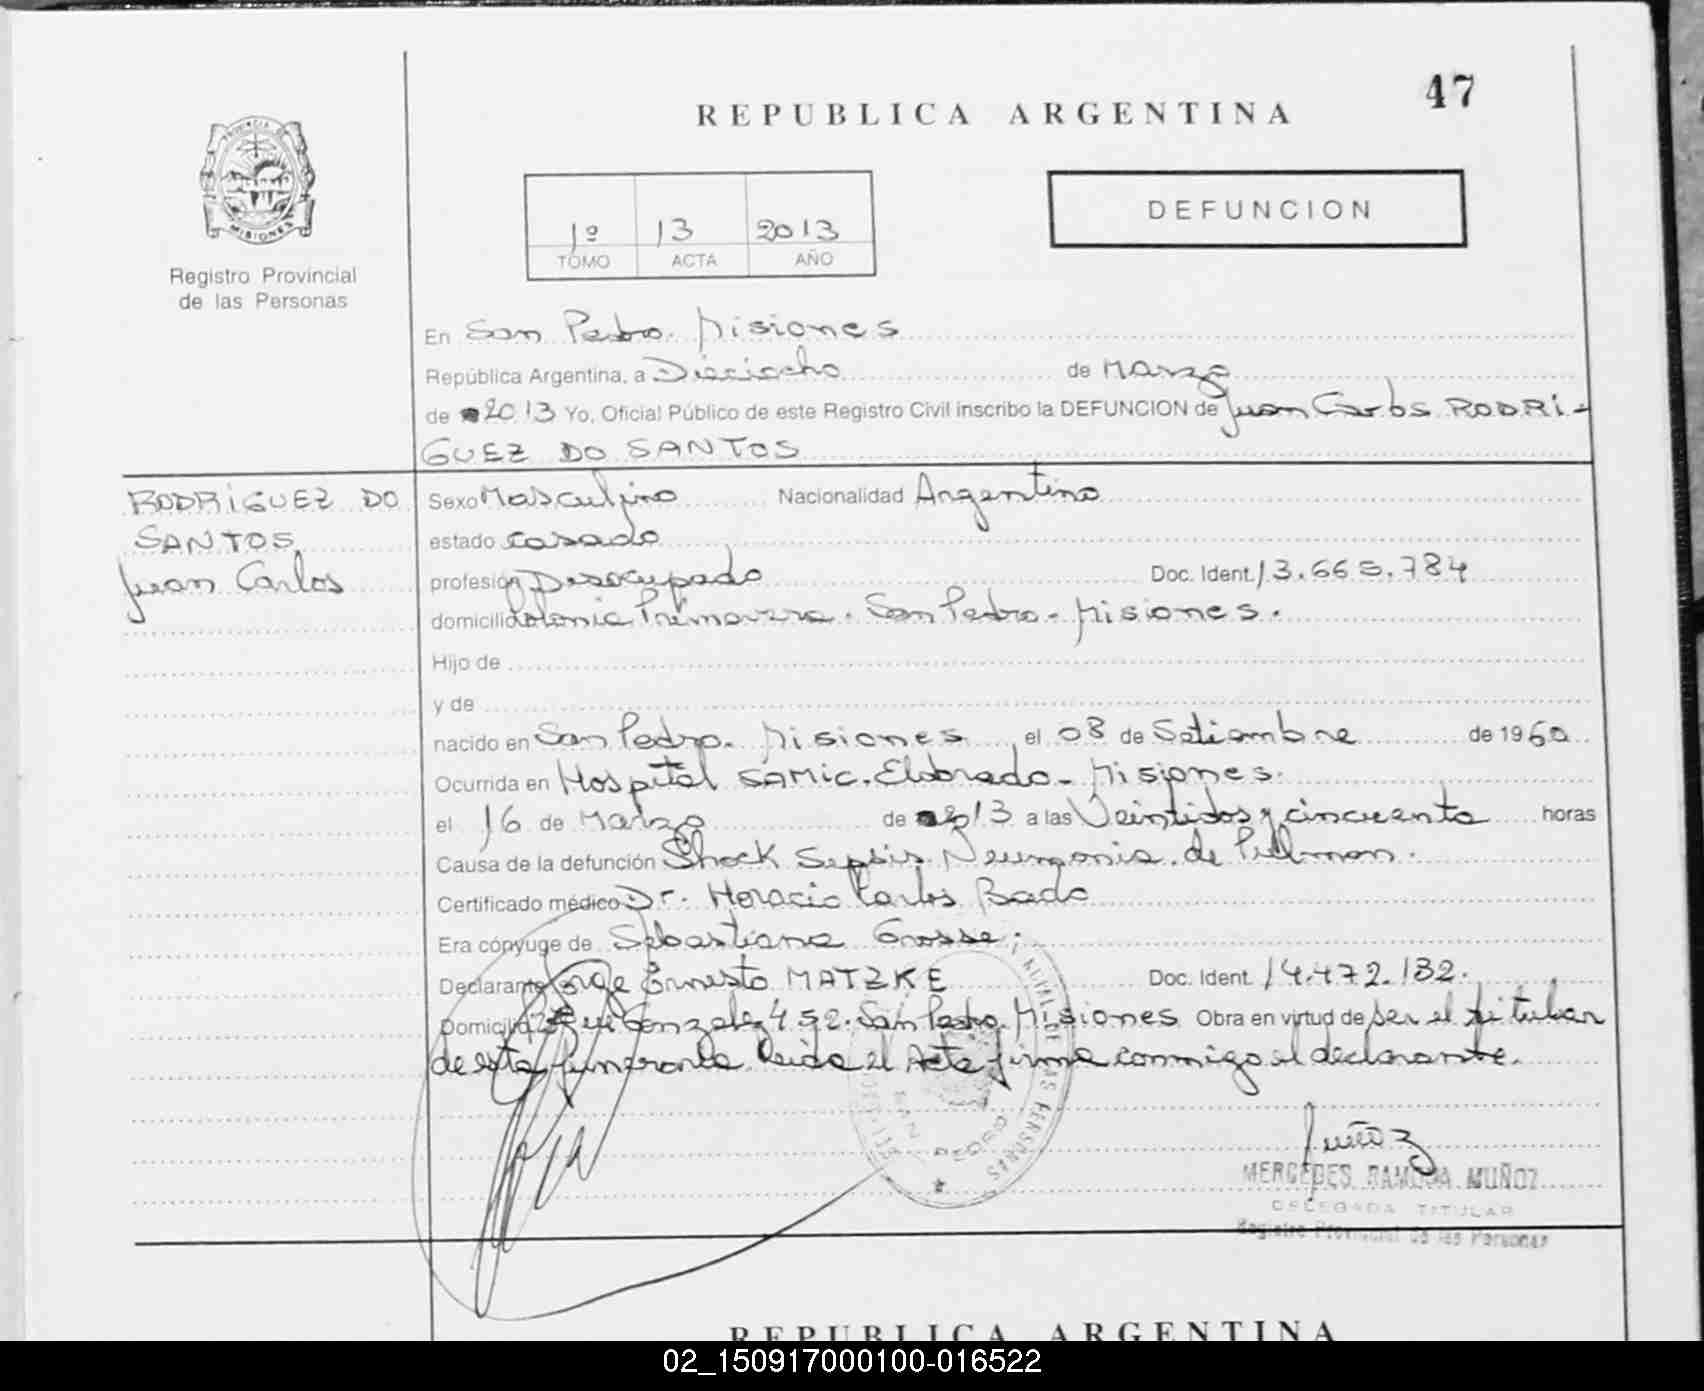 47
REPUBLICA ARGENTINA
PROVINCIA DE
MISIONES
Registro Provincial
de las Personas
1º 13 2013
TOMO ACTA AÑO
DEFUNCION
En San Pedro. Misiones
República Argentina, a Dieciocho de Marzo
de 2013 Yo, Oficial Público de este Registro Civil inscribo la DEFUNCION de Juan Carlos RODRI-
GUEZ DO SANTOS
RODRIGUEZ DO
SANTOS
Juan Carlos
Sexo Masculino Nacionalidad Argentino
estado casado
profesión Desocupado Doc. Ident. 13.665.784
domicilio Colonia Primavera. San Pedro - Misiones.
Hijo de
y de
nacido en San Pedro. Misiones el 08 de Setiembre de 1960
Ocurrida en Hospital SAMIC. Eldorado - Misiones.
el 16 de Marzo de 2013 a las Veintidos y cincuenta horas
Causa de la defunción Shock Sepsis Neumonia de
Certificado médico Dr. Horacio Carlos Bado
Era cónyuge de Sebastiana Grosse.
Declarante Jorge Ernesto MATZKE Doc. Ident. 14.472.132.
Domicilio Gonzalez 452. San Pedro. Misiones Obra en virtud de ser el titular
de esta funeraria Leida el Acta firma conmigo el declarante.
DE LAS PERSONAS
SAN PEDRO
Muñoz
MERCEDES RAMONA MUÑOZ
DELEGADA TITULAR
Registro Provincial de las Personas
REPUBLICA ARGENTINA
02_150917000100-016522